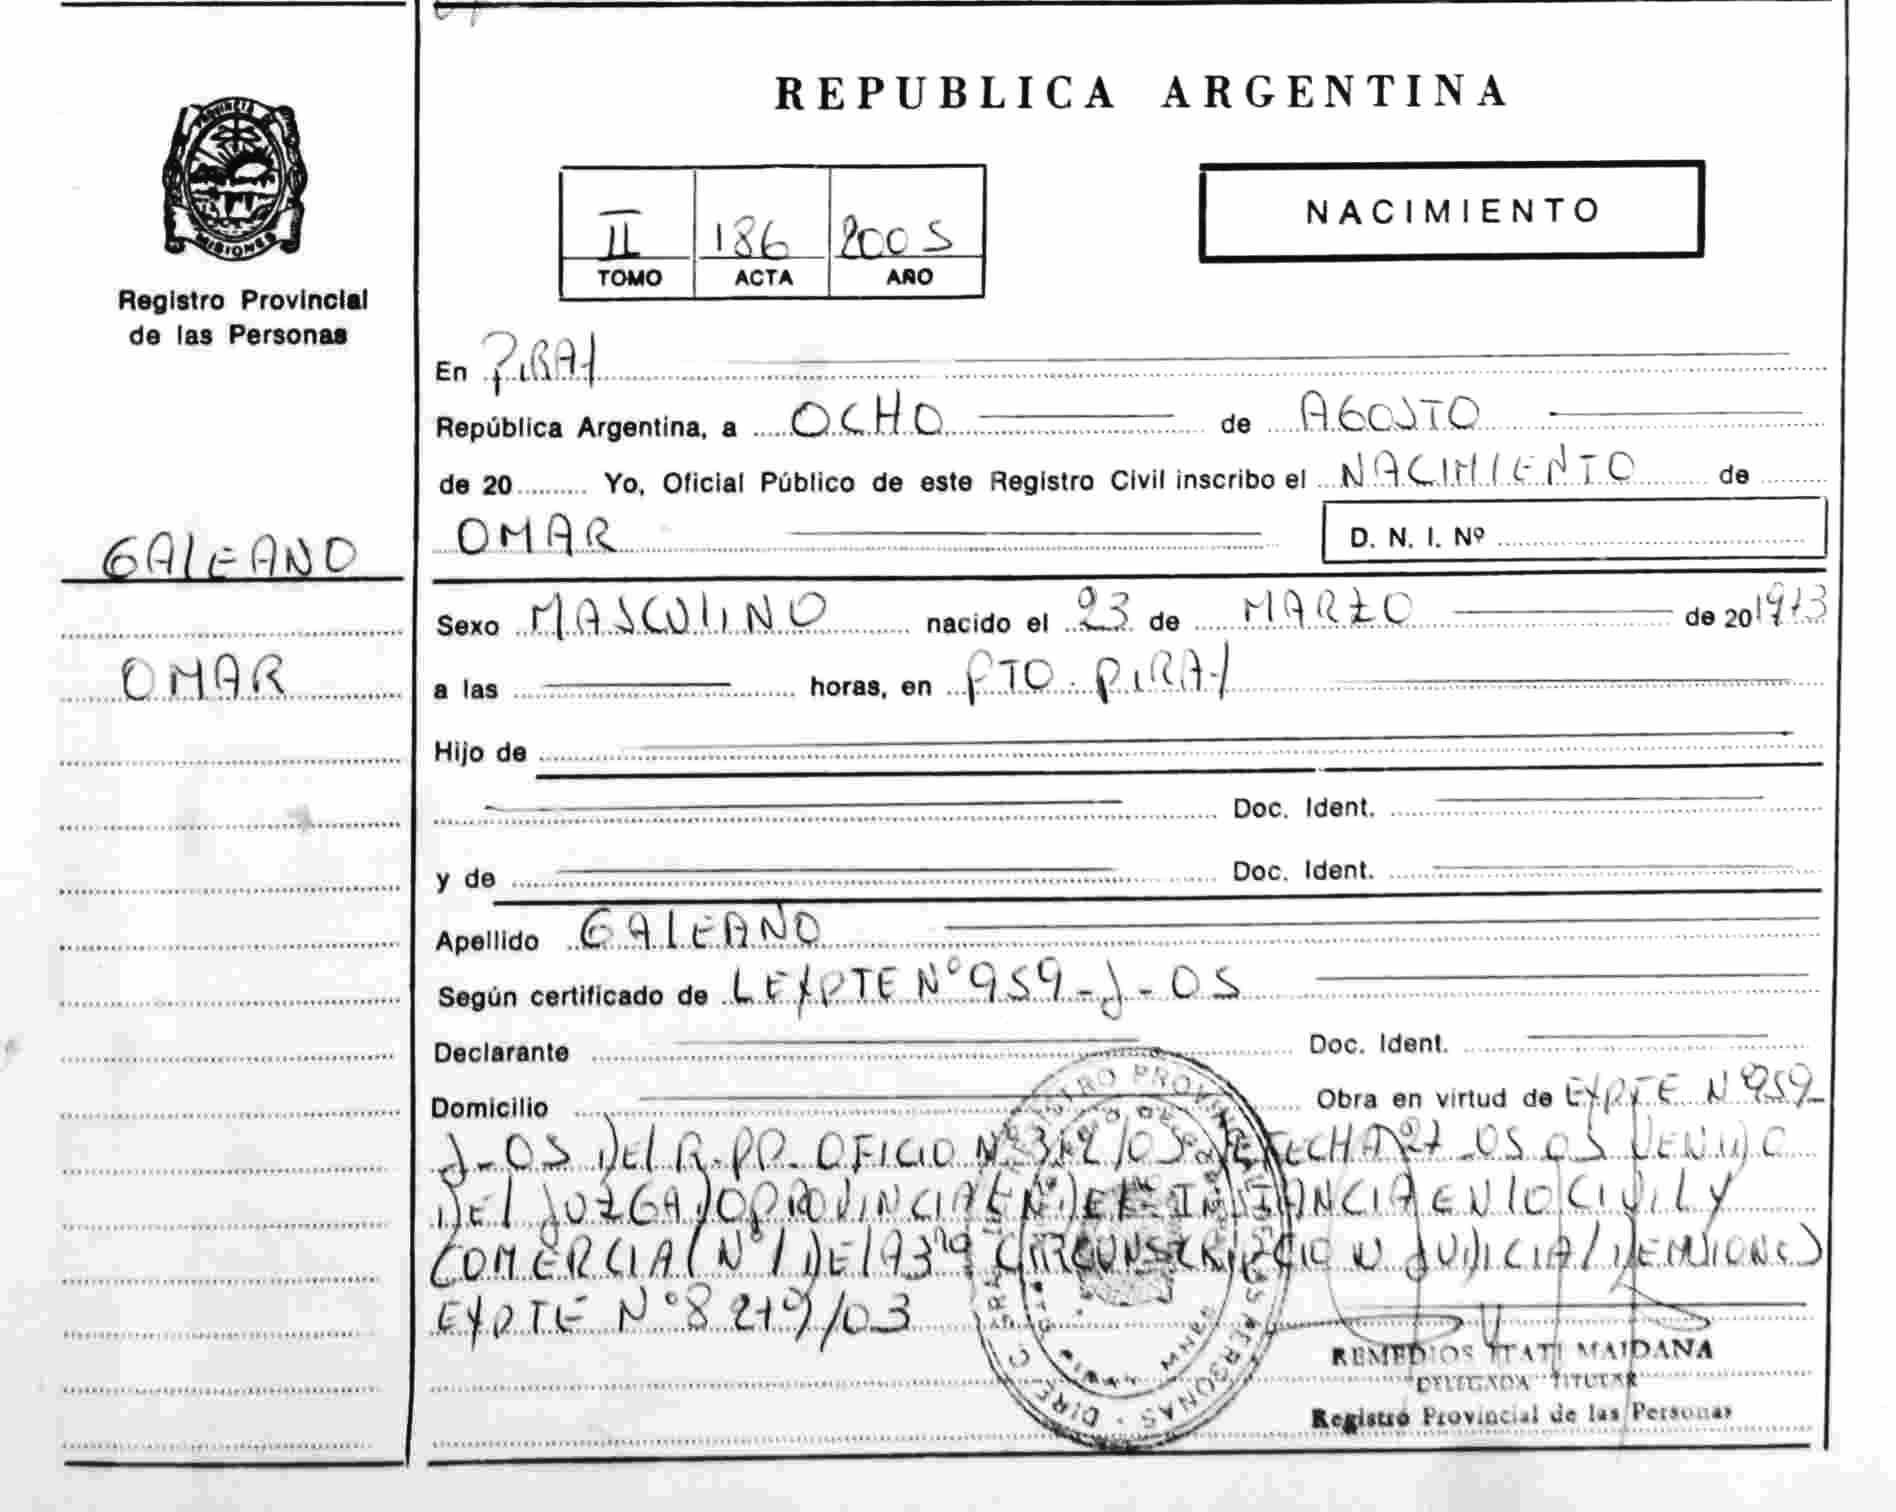 REPUBLICA ARGENTINA
PROVINCIA DE
MISIONES
Registro Provincial
de las Personas
NACIMIENTO
II 186 2005
TOMO ACTA AÑO
En PIRAY
República Argentina, a OCHO de AGOSTO
de 20 Yo, Oficial Público de este Registro Civil inscribo el NACIMIENTO de
OMAR D. N. I. Nº
GALEANO
Sexo MASCULINO nacido el 23 de MARZO de 20 1973
OMAR
a las horas, en PTO. PIRAY
Hijo de
Doc. Ident.
y de Doc. Ident.
Apellido GALEANO
Según certificado de L EXPTE Nº 959-J-05
Declarante Doc. Ident.
Domicilio Obra en virtud de EXPTE Nº 959-
J-05 DEL R.PP. OFICIO Nº /05 FECHA 27-05 05 VENIDO
DEL JUZGADO PROVINCIA EN DE INSTANCIA EN LO CIVIL Y
COMERCIAL Nº 1 DE LA 3ra CIRCUNSCRIPCION JUDICIAL DE MISIONES
EXPTE Nº 8279/03
REMEDIOS ITATI MAIDANA
DELEGADA TITULAR
Registro Provincial de las Personas
REGISTRO PROVINCIAL DE LAS PERSONAS